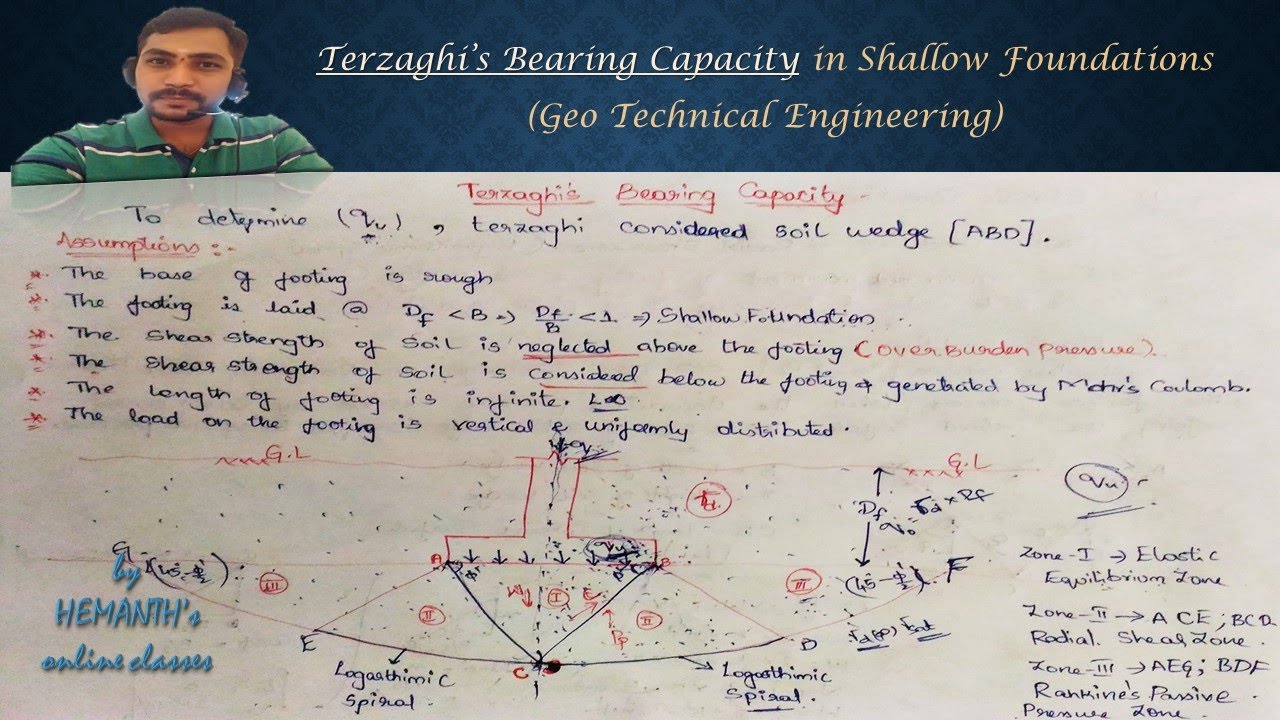 Terzaghi's Bearing Capacity in Shallow Foundations
(Geo Technical Engineering)
Terzaghi's Bearing Capacity -
To determine (qu), terzaghi considered soil wedge [ABD].
Assumptions :-
* The base of footing is rough
* The footing is laid @ Df < B => Df/B < 1 => Shallow Foundation .
* The Shear strength of Soil is neglected above the footing (OverBurden pressure).
* The Shear strength of soil is considered below the footing & genetrated by Mohr's Coulomb.
* The Length of footing is infinite. L∞.
* The load on the footing is vertical & uniformly distributed.
G.L
G.L
qu
Df
G
(45-φ/2)
III
A
B
III
(45-φ/2)
F
II
I
II
E
D
C
Logarthimic
Spiral.
Logarthimic
Spiral.
Zone-I → Elastic
Equilibrium Zone
Zone-II → ACE; BCD
Radial Shear Zone.
Zone-III → AEG; BDF
Rankine's Passive
Pressure Zone
by
HEMANTH's
online classes